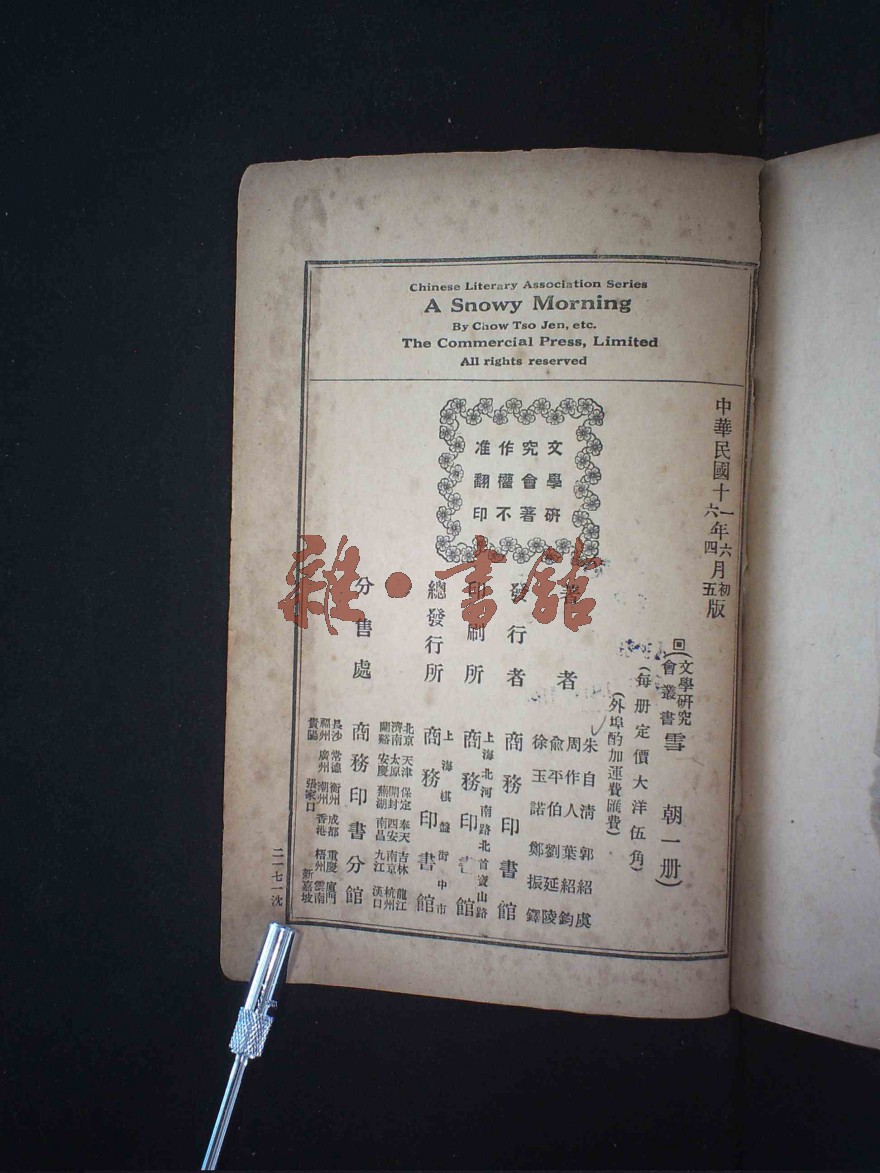 Chinese Literary Association Series
A Snowy Morning
By Chow Tso Jen, etc.
The Commercial Press, Limited
All rights reserved
文學研
究會著
作權不
准翻印
中華民國十一年六月初版
六年四月五版
回(文學研究會叢書)雪朝一册)
(每册定價大洋伍角)
(外埠酌加運費匯費)
著者
朱自清
周作人
俞平伯
徐玉諾
郭紹虞
葉紹鈞
劉延陵
鄭振鐸
發行者 商務印書館
印刷所 上海北河南路北首寶山路
商務印書館
總發行所 上海棋盤街中市
商務印書館
分售處
北京 天津 保定 奉天 吉林 龍江
濟南 太原 開封 西安 南京 杭州
蘭谿 安慶 蕪湖 南昌 九江 漢口
商務印書分館
長沙 常德 衡州 成都 重慶 廈門
福州 廣州 潮州 香港 梧州 雲南
貴陽 張家口 新嘉坡
二一七一沈
雜·書館